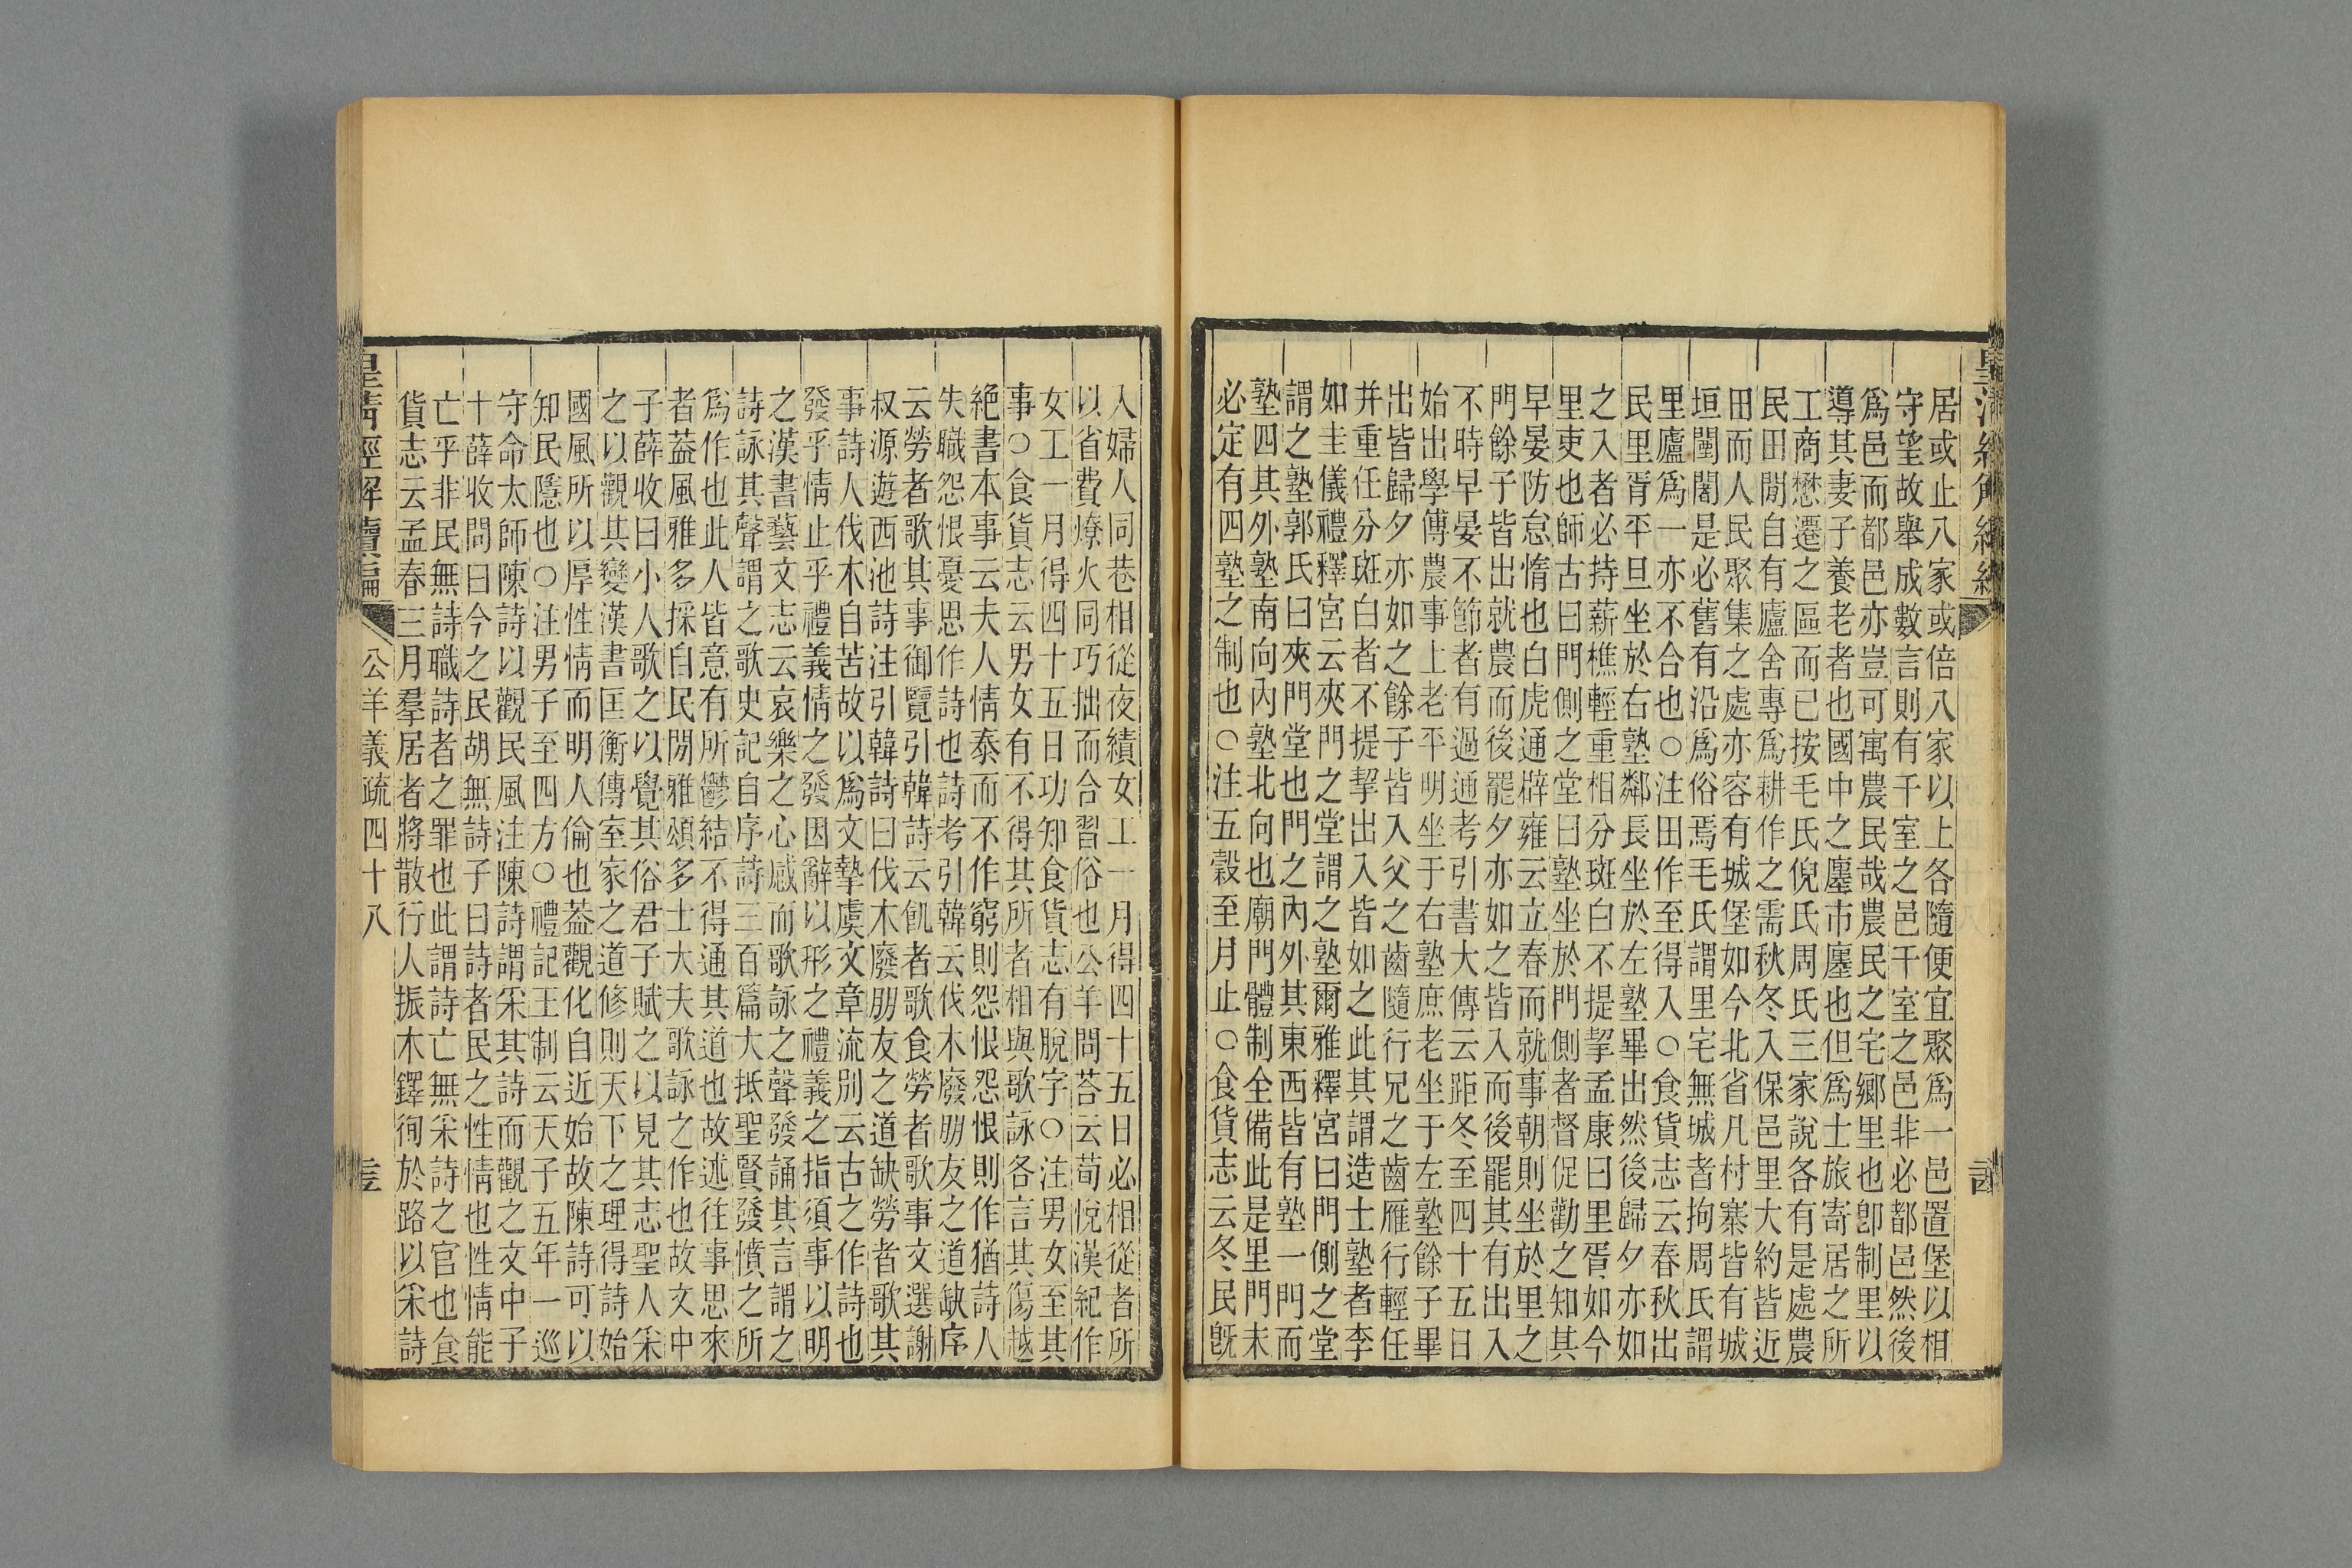 居或止八家或倍八家以上各隨便宜聚爲一邑置堡以相
守望故舉成數言則有千室之邑千室之邑非必都邑然後
爲邑而都邑亦豈可寓農民哉農民之宅鄉里也卽制里以
導其妻子養老者也國中之廛市廛也但爲士旅寄居之所
工商懋遷之區而已按毛氏倪氏周氏三家說各有是處農
民田閒自有廬舍專爲耕作之需秋冬入保邑里大約皆近
田而人民聚集之處亦容有城堡如今北省凡村寨皆有城
垣闉闍是必舊有沿爲俗焉毛氏謂里宅無城者拘周氏謂
里廬爲一亦不合也○注田作至得入○食貨志云春秋出
民里胥平旦坐於右塾鄰長坐於左塾畢出然後歸夕亦如
之入者必持薪樵輕重相分斑白不提挈孟康曰里胥如今
里吏也師古曰門側之堂曰塾坐於門側者督促勸之知其
早晏防怠惰也白虎通辟雍云立春而就事朝則坐於里之
門餘子皆出就農而後罷夕亦如之皆入而後罷其有出入
不時早晏不節者有過通考引書大傳云距冬至四十五日
始出學傅農事上老平明坐于右塾庶老坐于左塾餘子畢
出皆歸夕亦如之餘子皆入父之齒隨行兄之齒雁行輕任
并重任分斑白者不提挈出入皆如之此其謂造士塾者李
如圭儀禮釋宮云夾門之堂謂之塾爾雅釋宮曰門側之堂
謂之塾郭氏曰夾門堂也門之內外其東西皆有塾一門而
塾四其外塾南向內塾北向也廟門體制全備此是里門未
必定有四塾之制也○注五穀至月止○食貨志云冬民旣
入婦人同巷相從夜績女工一月得四十五日必相從者所
以省費燎火同巧拙而合習俗也公羊問荅云荀悅漢紀作
女工一月得四十五日功知食貨志有脫字○注男女至其
事○食貨志云男女有不得其所者相與歌詠各言其傷越
絶書本事云夫人情泰而不作窮則怨恨怨恨則作猶詩人
失職怨恨憂思作詩也詩考引韓云伐木廢朋友之道缺序
云勞者歌其事御覽引韓詩云飢者歌食勞者歌事文選謝
叔源遊西池詩注引韓詩曰伐木廢朋友之道缺勞者歌其
事詩人伐木自苦故以爲文摯虞文章流別云古之作詩也
發乎情止乎禮義情之發因辭以形之禮義之指須事以明
之漢書藝文志云哀樂之心感而歌詠之聲發誦其言謂之
詩詠其聲謂之歌史記自序詩三百篇大抵聖賢發憤之所
爲作也此人皆意有所鬱結不得通其道也故述往事思來
者葢風雅多採自民閒雅頌多士大夫歌詠之作也故文中
子薛收曰小人歌之以覺其俗君子賦之以見其志聖人采
之以觀其變漢書匡衡傳室家之道修則天下之理得詩始
國風所以厚性情而明人倫也葢觀化自近始故陳詩可以
知民隱也○注男子至四方○禮記王制云天子五年一巡
守命太師陳詩以觀民風注陳詩謂采其詩而觀之文中子
十薛收問曰今之民胡無詩子曰詩者民之性情也性情能
亡乎非民無詩職詩者之罪也此謂詩亡無采詩之官也食
貨志云孟春三月羣居者將散行人振木鐸徇於路以采詩
皇淸經解續編
公羊義疏四十八